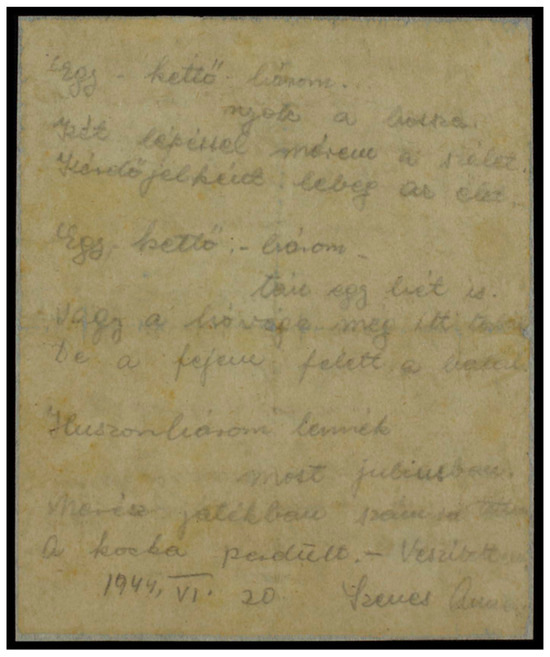 Egy - kettő - három.
nyolc a hossza.
Két lépéssel mérem a szélet.
Kérdőjelként lebeg az élet.
Egy, kettő, - három -
tán egy hét is.
Vagy a hóvége még itt
De a fejem felett a
Huszonhárom lennék
most júliusban.
Merész játékban számra
A kocka perdült. - Vesztettem
1944. VI. 20 Szenes